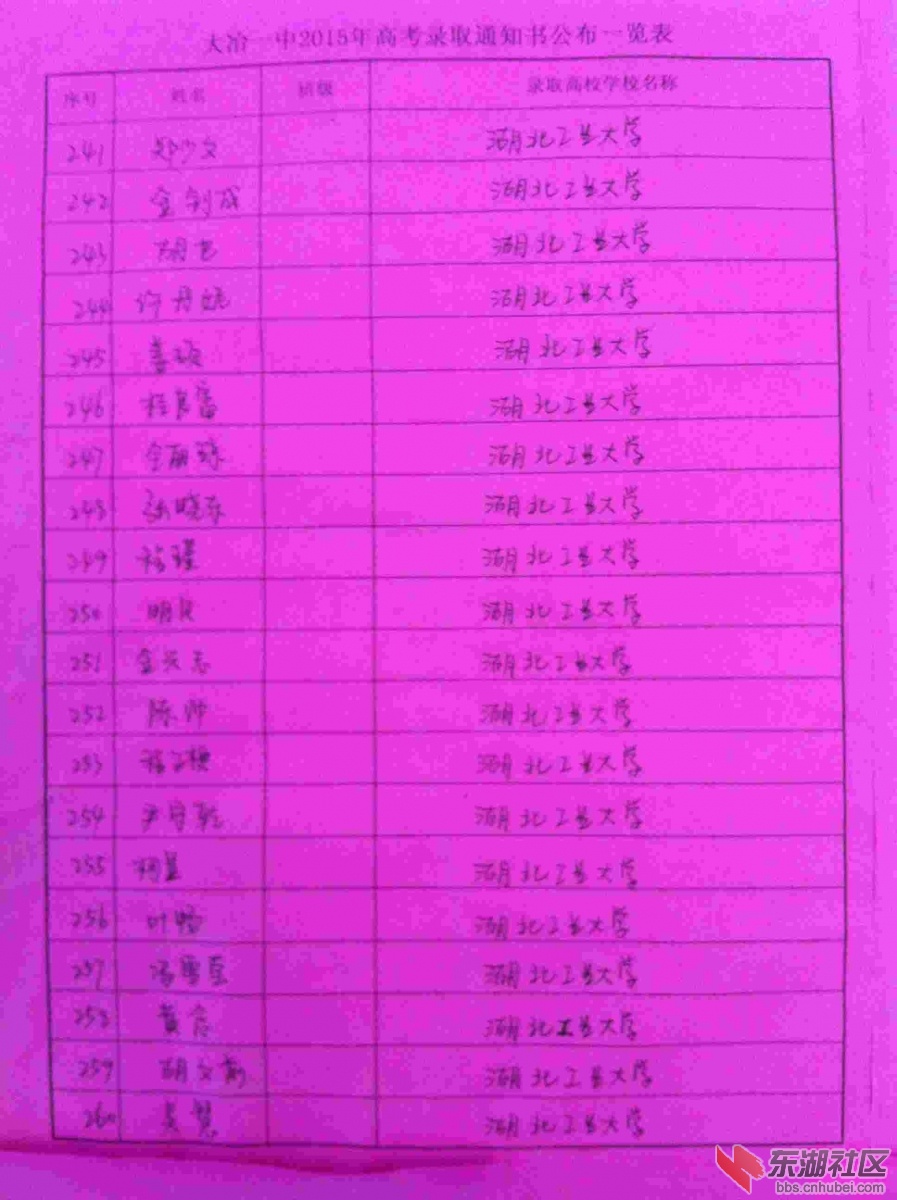 大冶一中2015年高考录取通知书公布一览表
序号 姓名 班级 录取高校学校名称
241 郑少文 湖北工业大学
242 金剑成 湖北工业大学
243 湖北工业大学
244 许丹妮 湖北工业大学
245 姜硕 湖北工业大学
246 程良富 湖北工业大学
247 湖北工业大学
248 张晓东 湖北工业大学
249 湖北工业大学
250 明 湖北工业大学
251 金 志 湖北工业大学
252 陈帅 湖北工业大学
253 湖北工业大学
254 尹守乾 湖北工业大学
255 湖北工业大学
256 叶畅 湖北工业大学
257 冯 湖北工业大学
258 黄 湖北工业大学
259 胡文 湖北工业大学
260 吴慧 湖北工业大学
东湖社区
bbs.cnhubei.com